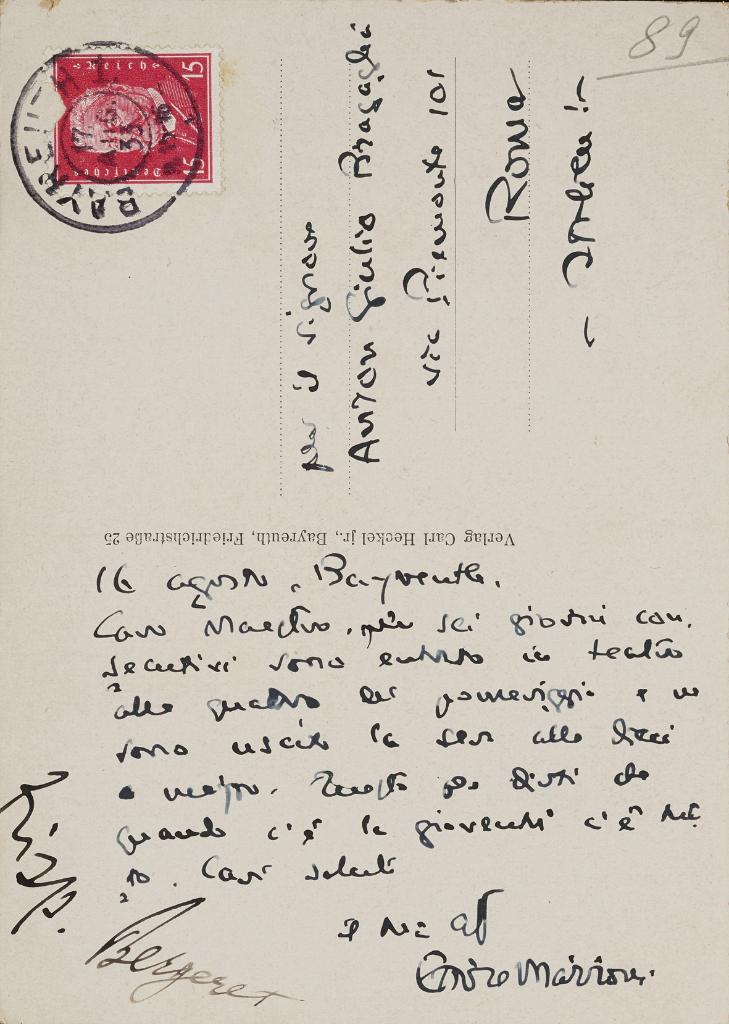 89
Deutsches Reich
15
15
BAYREUTH 1
17
AUG.
33
per il signore
Anton Giulio Bragaglia
via Piemonte 101
Roma
— Italien !—
Verlag Carl Heckel jr., Bayreuth, Friedrichstraße 25
16 agosto, Bayreuth.
Caro Maestro, per sei giorni con,
secutivi sono entrato in teatro
alle quattro del pomeriggio e ne
sono uscito la sera alle dieci
e mezzo. Questo per dirti che
quando c'è la gioventù c'è tut,
to. Cari saluti
Risp.
Bergeret